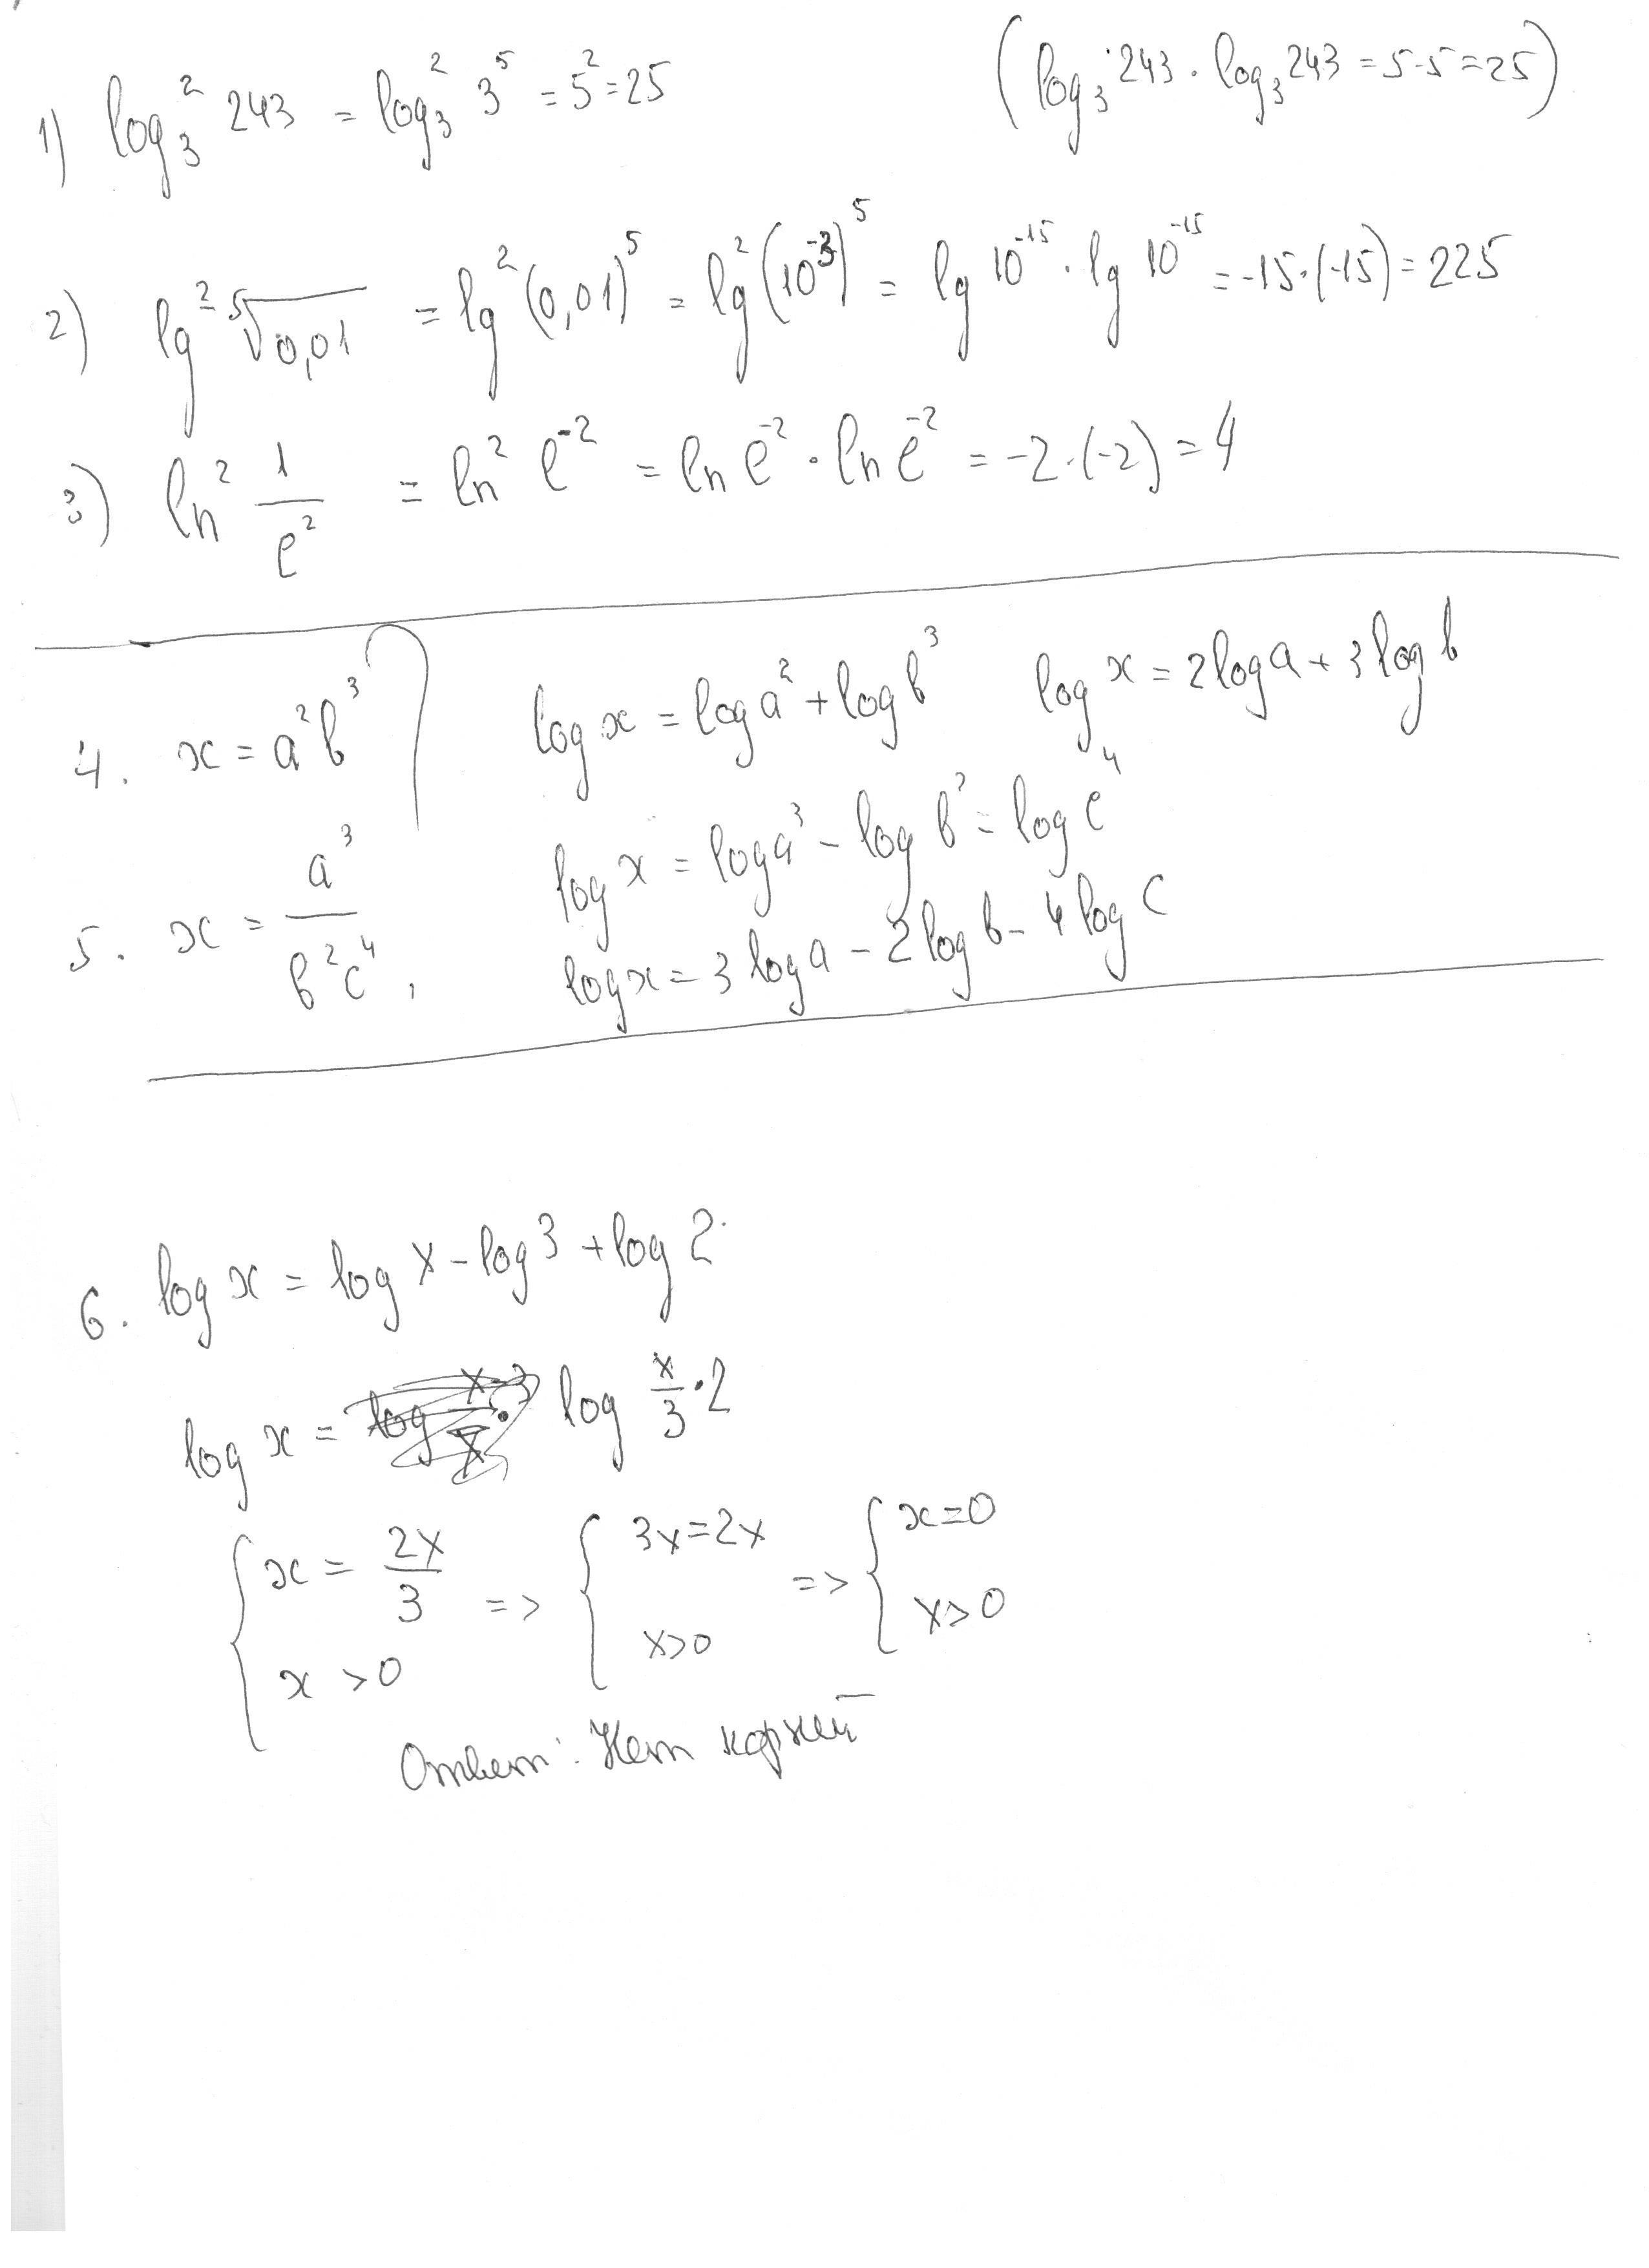 1) log₃² 243 = log₃² 3⁵ = 5² = 25 (log₃ 243 · log₃ 243 = 5·5 = 25)
2) lg² ⁵√0,01 = lg² (0,01)⁵ = lg² (10⁻³)⁵ = lg 10⁻¹⁵ · lg 10⁻¹⁵ = -15·(-15) = 225
3) ln² 1/e² = ln² e⁻² = ln e⁻² · ln e⁻² = -2·(-2) = 4
4. x = a²b³ log x = log a² + log b³ log x = 2 log a + 3 log b
5. x = a³/b²c⁴, log x = log a³ - log b² - log c⁴
log x = 3 log a - 2 log b - 4 log c
6. log x = log x - log 3 + log 2
log x = log x/3 · 2
{ x = 2x/3 => { 3x = 2x => { x = 0
x > 0 x > 0 x > 0
Ответ: Нет корней